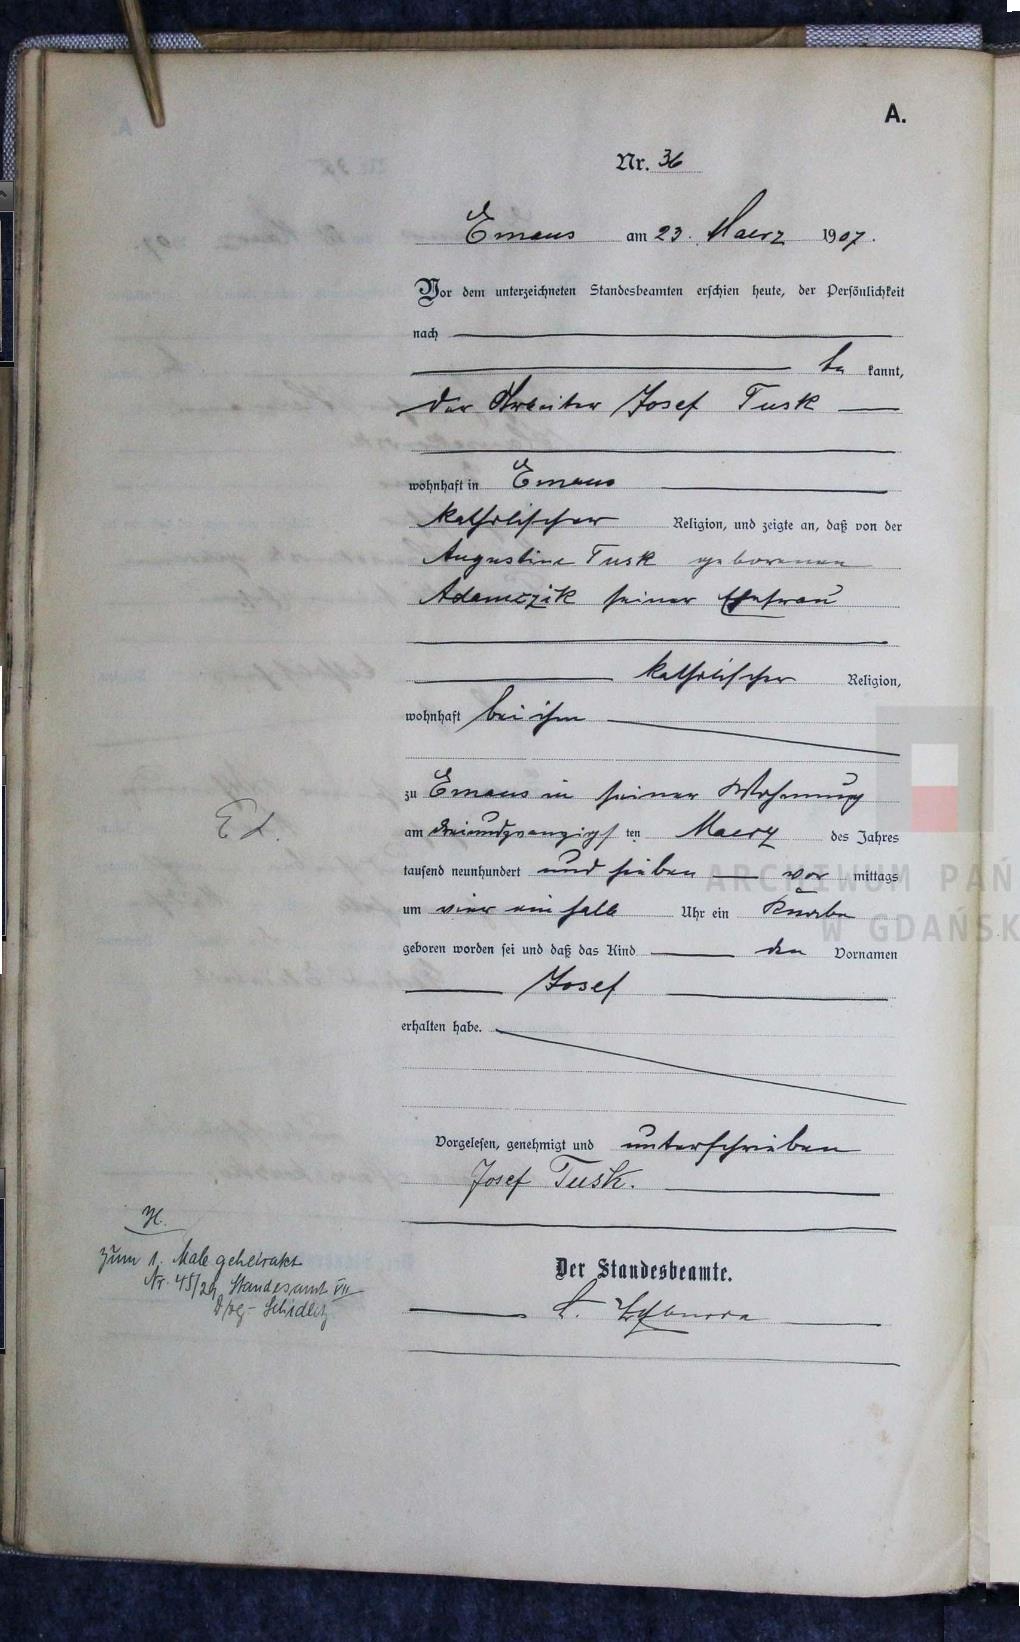 A.
Nr. 36
Emaus am 23. Maerz 1907.
Vor dem unterzeichneten Standesbeamten erschien heute, der Persönlichkeit
nach
be kannt,
der Arbeiter Josef Tusk
wohnhaft in Emaus
katholischer Religion, und zeigte an, daß von der
Augustine Tusk geborenen
Adamczik seiner Ehefrau
katholischer Religion,
wohnhaft bei ihm
zu Emaus in seiner Wohnung
am dreiundzwanzigs ten Maerz des Jahres
tausend neunhundert und sieben vor mittags
um vier ein halb Uhr ein Knabe
geboren worden sei und daß das Kind den Vornamen
Josef
erhalten habe.
Vorgelesen, genehmigt und unterschrieben
Josef Tusk.
Der Standesbeamte.
H.
zum 1. Male geheiratet
Nr. 45/29, Standesamt VII
Dzg- Schidlitz
ARCHIWUM PAŃ
W GDAŃSK